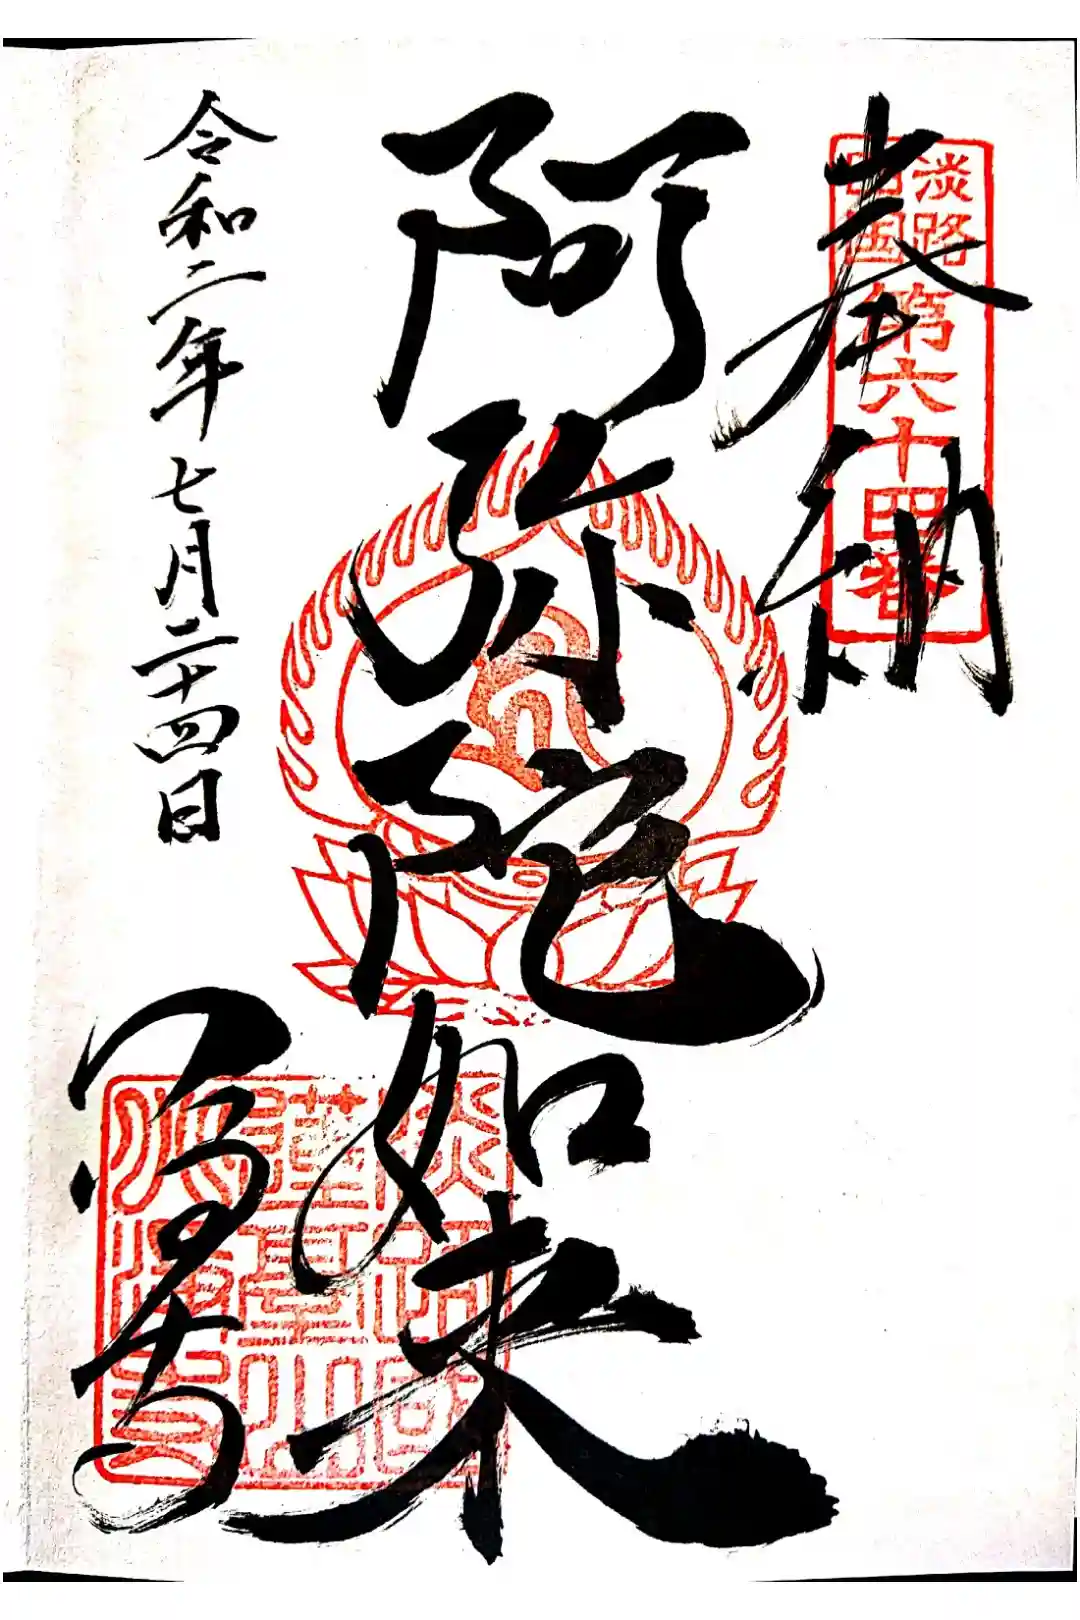 奉納
淡路
四国
第六十四番
阿弥陀如来
令和二年七月二十四日
淡路國
蓮臺山